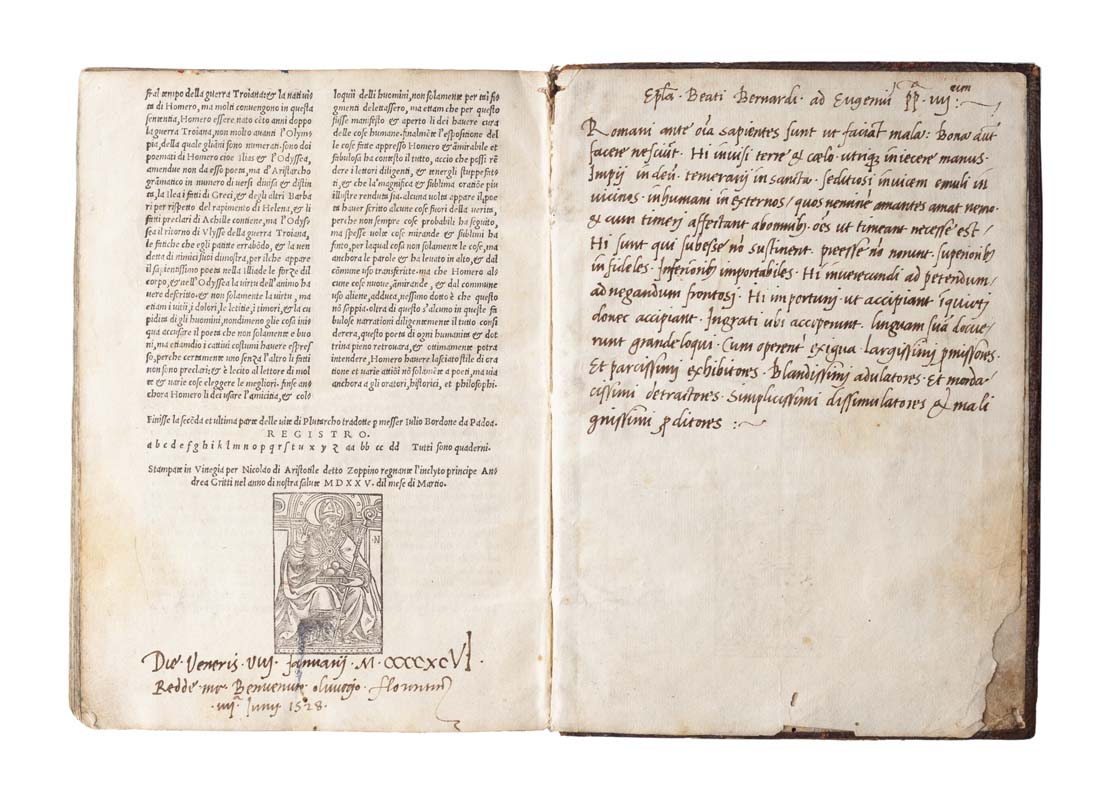 fra l tempo della guerra Troiana: & la natiuita
di Homero, ma molti conuengono in questa
sententia, Homero essere nato cēto anni doppo
la guerra Troiana, non molto auanti l'Olympia,
della quale gli āni sono numerati. sono doi
poemati di Homero cioe Ilias & l'Odyssea,
amendue non da esso poeta, ma d'Aristarcho
grāmatico in numero di uersi diuisa & distinta,
la Ilea i fatti di Greci, & degli altri Barbari
per rispetto del rapimento di Helena, & li
fatti preclari di Achille contiene, ma l'Odyssea
il ritorno di Vlysse della guerra Troiana,
le fatiche che egli patite errabōdo, & la uendetta
di nimici suoi dimostra, per il che appare
il sapientissimo poeta nella illiade le forze dil
corpo, & nell'Odyssea la uirtu dell'animo hauere
descritto. & non solamente la uirtu, ma
etiam i uitii, i dolori, le letitie, i timori, & la cupidita
di gli huomini, nondimeno glie cosa iniqua
accusare il poeta che non solamente e buoni,
ma etiamdio i cattiui costumi hauere espresso,
perche certamente uno senza l'altro li fatti
non sono preclari: & è lecito al lettore di molte
& uarie cose eleggere le megliori. finse anchora
Homero li dei usare l'amicitia, & colloquii
delli huomini, non solamente per tai figmenti
delettassero, ma etiam che per questo
fusse manifesto & aperto li dei hauere cura
delle cose humane. finalmēte l'espositione del
le cose fatte appresso Homero & amirabile et
fabulosa ha contesto il tutto, accio che possi rēdere
i lettori diligenti, & tenergli stuppefatti,
& che la magnifica & sublima oratiōe piu
illustre renduta sia. alcuna uolta appare il, poeta
hauer scritto alcune cose fiori della uerita,
perche non sempre cose probabili ha seguito,
ma spesse uolte cose mirande & sublimi ha
finto, per laqual cosa non solamente le cose, ma
anchora le parole & ha leuato in alto, & dal
cōmune uso transferitte. ma che Homero alcune
cose nuoue, āmirande, & dal commune
uso aliene, adduca, nessimo dotto è che questo
nō sappia. oltra di questo s'alcuno in queste fabulose
narrationi diligentemente il tutto considera,
questo poeta di ogni humanita & dottrina
pieno retrouara, & ottimamente potra
intendere, Homero hauere lasciato stile di oratione
et uarie attiōi nō solamente a poeti, ma uia
anchora a gli oratori, historici, et philosophi.
Finisse la secōda et ultima parte delle uite di Plutarcho tradotte p messer Iulio Bordone da Padoa.
REGISTRO.
a b c d e f g h i k l m n o p q r s t u x y z aa bb cc dd Tutti sono quaderni.
Stampate in Vinegia per Nicolao di Aristotile detto Zoppino regnante l'inclyto principe Andrea
Gritti nel anno di nostra salute MDXXV. dil mese di Martio.
N
Die Veneris VIII Januarij M CCCCXCVI.
Redde mr Benvenuto florentin
Junij 1528.
Epl̄a Beati Bernardi ad Eugeniū pp̄ iijcium
Romani ante oīa sapientes sunt ut faciāt mala: Bona aūt
facere nesciūt. Hi invisi terre & cœlo utriqz iniecere manus.
Impij in deū temerarij in sancta. seditiosi invicem emuli in
vicinos inhumani in externos / quos nemine amantes amat nemo.
& cum timeri affectant ab omnibus oēs ut timeant necesse est /
Hi sunt qui subesse nō sustinent. preesse nō norunt. superioribus
infideles. Inferioribus importabiles. Hi inverecundi ad petendum,
ad negandum frontosi. Hi importuni ut accipiant iquieti
donec accipiant. Ingrati ubi acceperunt. linguam suā docue/
runt grande loqui. Cum operent exigua. Largissimi pmissores.
Et parcissimi exhibitores. Blandissimi adulatores. Et morda/
cissimi detractores. Simplicissimi dissimulatores & mali
gnissimi pditores :~